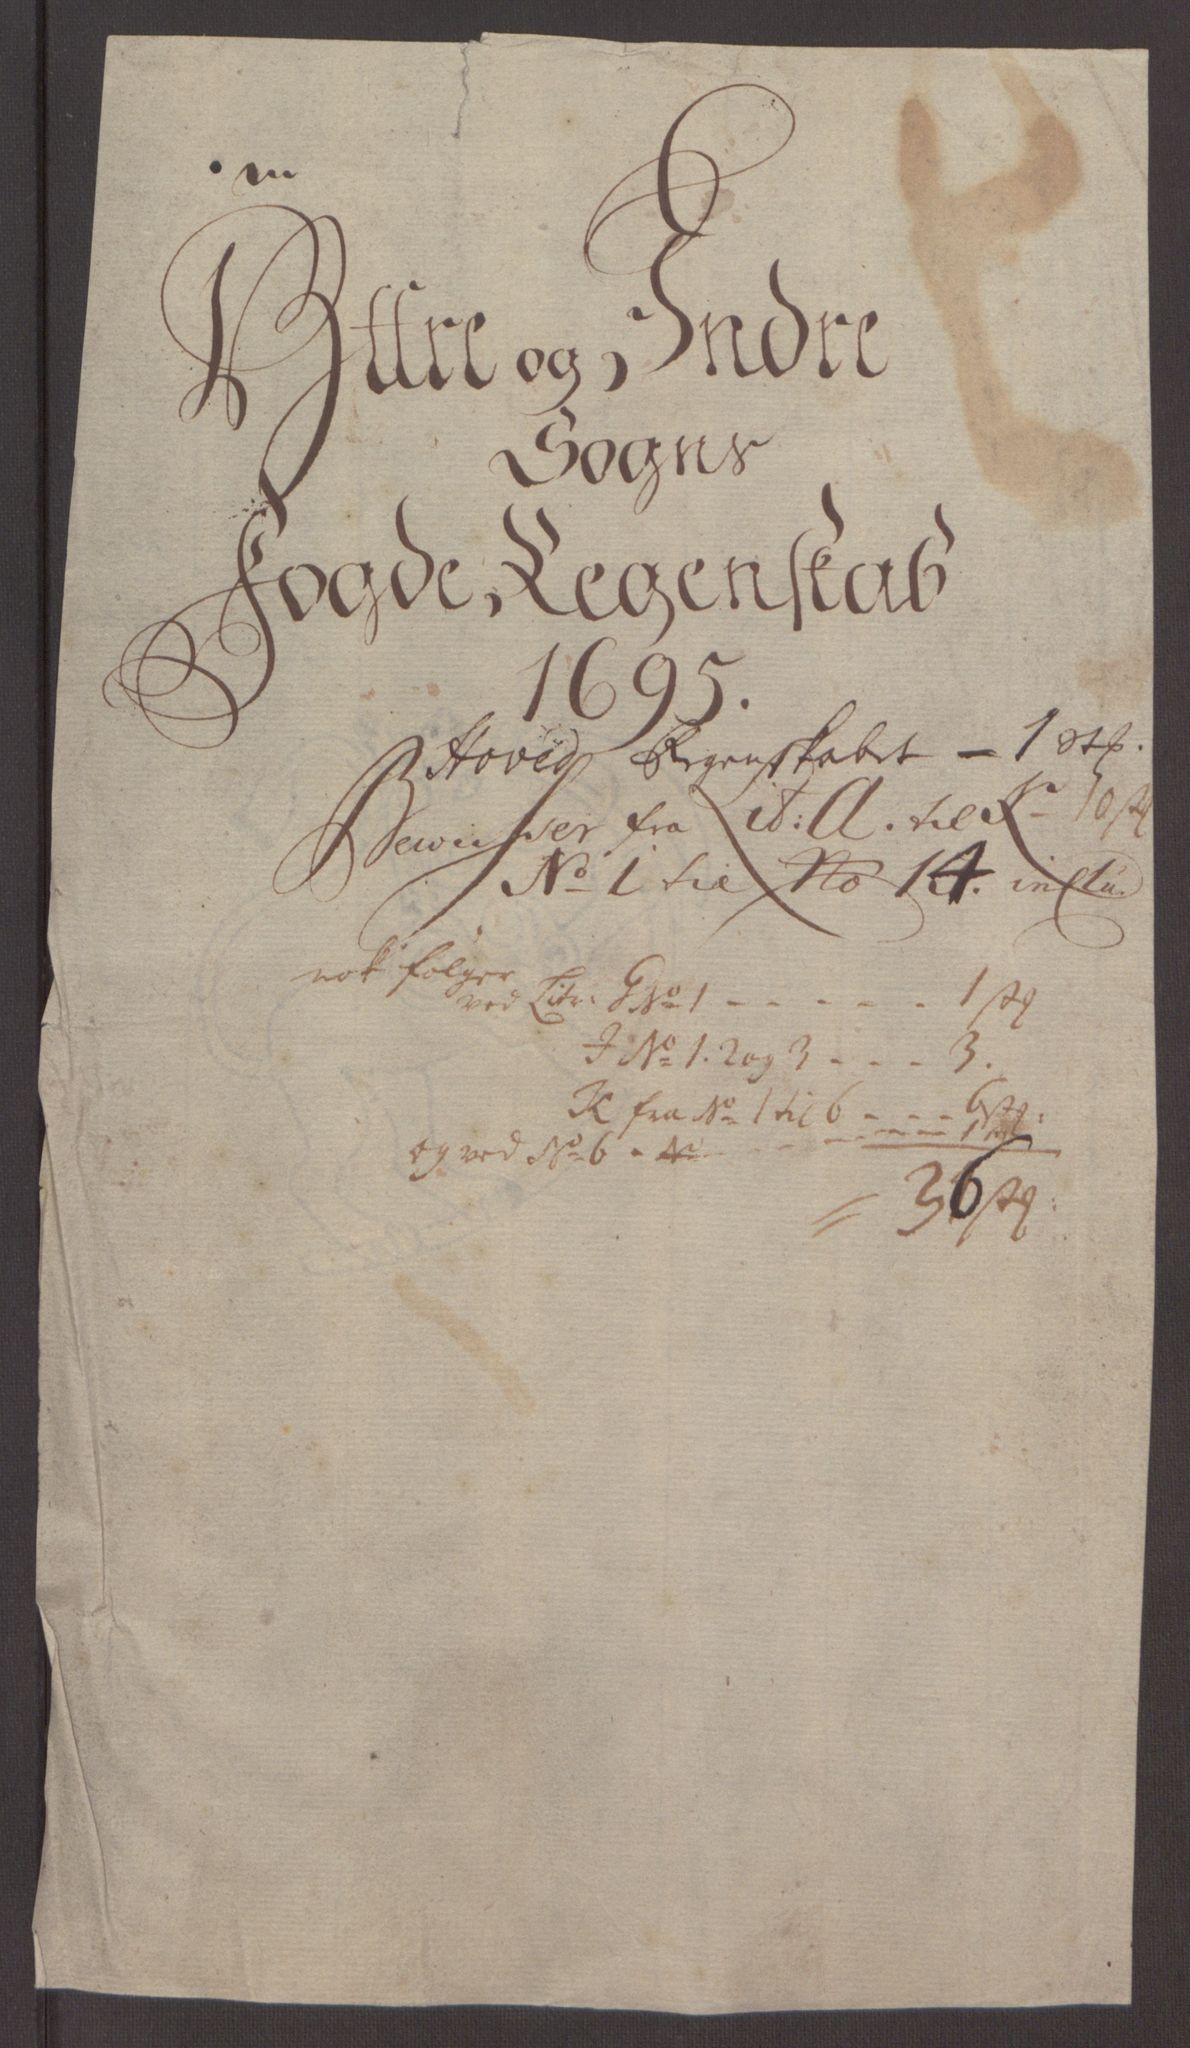 m
Yttre og Indre
Sogns
Fogde Regenskab
1695.
Hoved Regenskabet - 1 stk.
Bewiiser fra Lit: A. til K - 10 stk
No 1 til No 14. inclu.
nok følger
ved Litr: G No 1 - - - - - - 1 stk
I No 1. 2 og 3 - - - - 3.
K fra No 1 til 6 - - - - 6 stk:
og ved No 6 - - - - - - - 1 stk
= 36 stk: